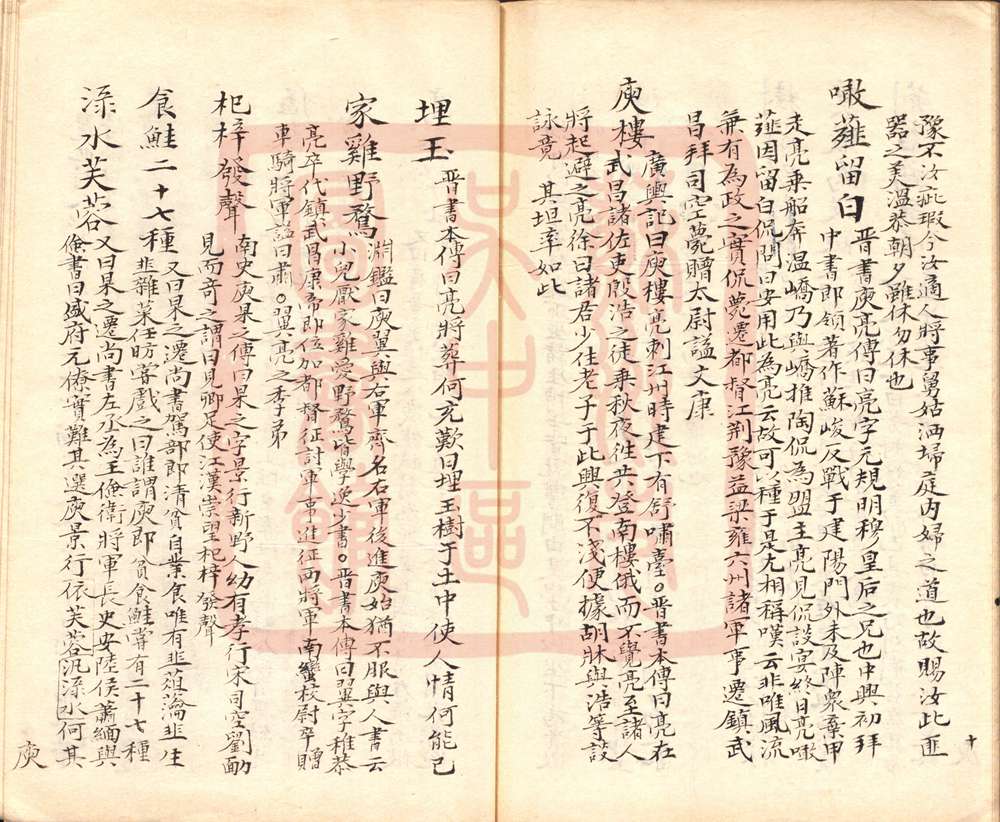 豫不汝疵瑕今汝適人將事舅姑洒埽庭內婦之道也故賜汝此匪
器之美溫恭朝夕雖休勿休也
噉薤留白 晉書庾亮傳曰亮字元規明穆皇后之兄也中興初拜
中書郎領著作蘇峻反戰于建陽門外未及陣衆棄甲
走亮乘船奔溫嶠乃與嶠推陶侃為盟主亮見侃談宴終日亮噉
薤因留白侃問曰安用此為亮云故可以種于是尤相稱嘆云非唯風流
兼有為政之實侃薨遷都督江荆豫益梁雍六州諸軍事遷鎮武
昌拜司空薨贈太尉謚文康
庾樓 廣輿記曰庾樓亮刺江州時建下有舒嘯臺○晉書本傳曰亮在
武昌諸佐吏殷浩之徒乘秋夜徃共登南樓俄而不覺亮至諸人
將起避之亮徐曰諸君少住老子于此興復不淺便據胡牀與浩等談
詠竟 其坦率如此
埋玉 晉書本傳曰亮將葬何充歎曰埋玉樹于土中使人情何能已
家雞野鶩 淵鑑曰庾翼與右軍齊名右軍後進庾始猶不服與人書云
小兒厭家雞愛野鶩皆學逸少書○晉書本傳曰翼字稚恭
亮卒代鎮武昌康帝即位加都督征討軍事進征西將軍南蠻校尉卒贈
車騎將軍謚曰肅○翼亮之季弟
杞梓發聲 南史庾杲之傳曰杲之字景行新野人幼有孝行宋司空劉勔
見而奇之謂曰見卿足使江漢崇望杞梓發聲
食鮭二十七種 又曰杲之遷尚書駕部郎清貧自業食唯有韭葅瀹韭生
韭雜菜任昉甞戲之曰誰謂庾郎貧食鮭嘗有二十七種
渌水芙蓉 又曰杲之遷尚書左丞為王儉衛將軍長史安陸侯蕭緬與
儉書曰盛府元僚實難其選庾景行依芙蓉汎渌水何其
庾
十